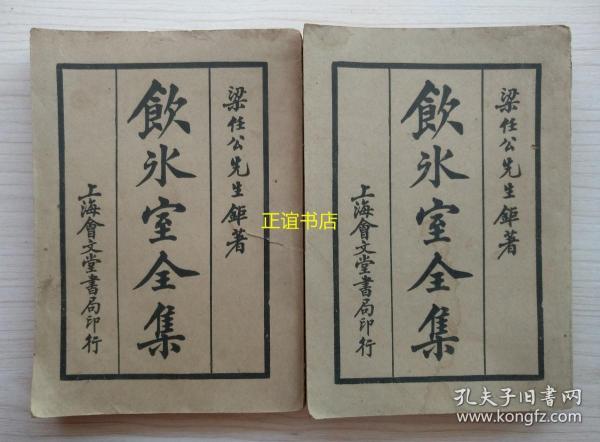 梁任公先生鉅著
飲氷室全集
上海會文堂書局印行
梁任公先生鉅著
飲氷室全集
上海會文堂書局印行
正谊书店
孔夫子旧书网
www.kongfz.com